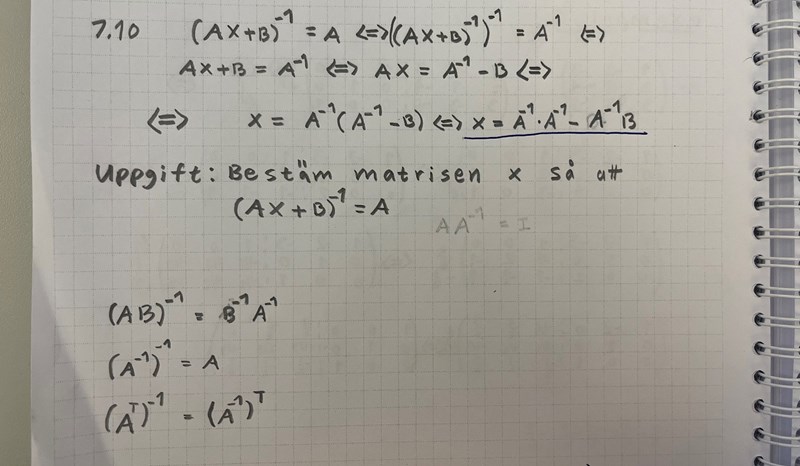 7.10 (AX+B)⁻¹ = A <=> ((AX+B)⁻¹)⁻¹ = A⁻¹ <=>
AX+B = A⁻¹ <=> AX = A⁻¹ - B <=>
<=> X = A⁻¹(A⁻¹ - B) <=> X = A⁻¹·A⁻¹ - A⁻¹B
Uppgift: Bestäm matrisen X så att
(AX + B)⁻¹ = A
AA⁻¹ = I
(AB)⁻¹ = B⁻¹A⁻¹
(A⁻¹)⁻¹ = A
(Aᵀ)⁻¹ = (A⁻¹)ᵀ